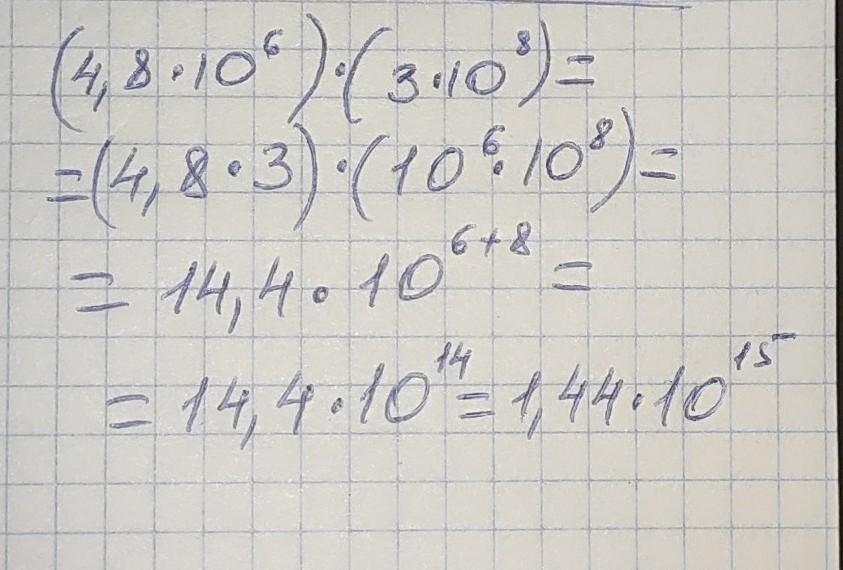 (4,8·10⁶)·(3·10⁸)=
=(4,8·3)·(10⁶·10⁸)=
= 14,4·10⁶⁺⁸ =
= 14,4·10¹⁴ = 1,44·10¹⁵